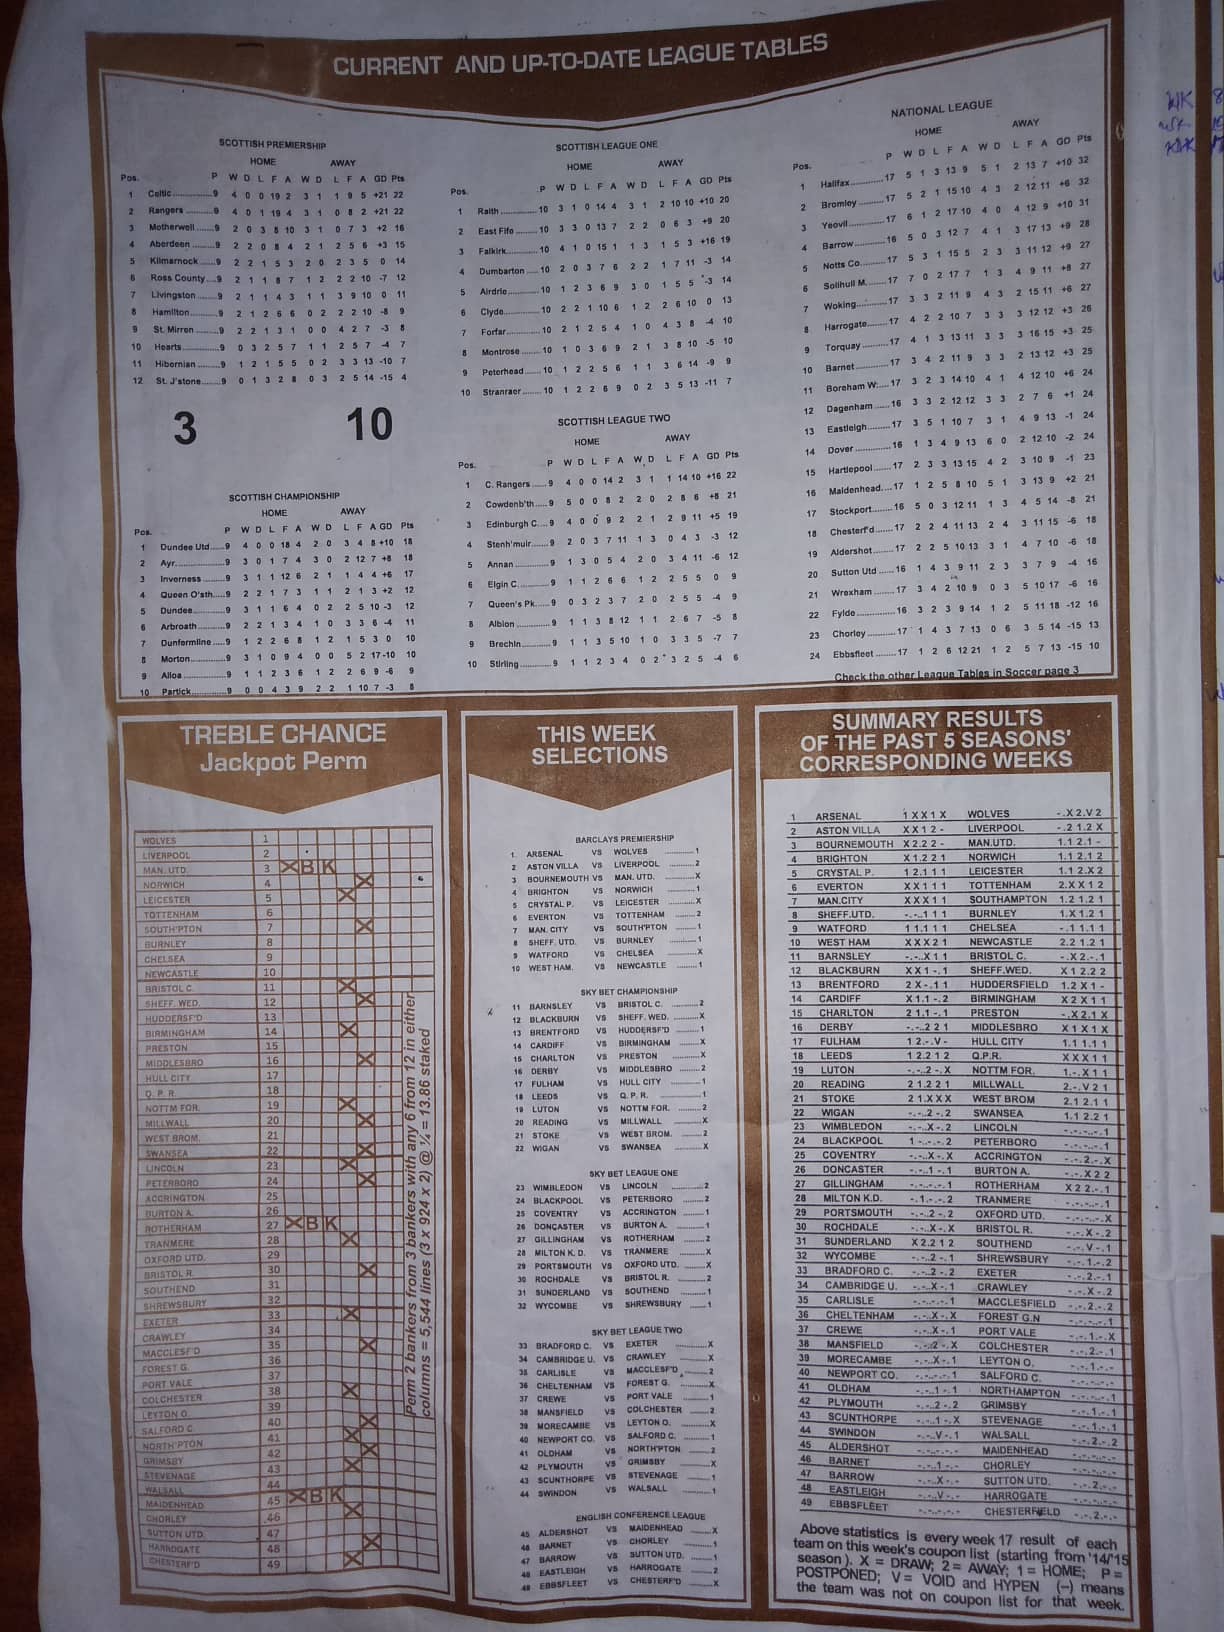 CURRENT AND UP-TO-DATE LEAGUE TABLES
SCOTTISH PREMIERSHIP
HOME AWAY
Pos. P W D L F A W D L F A GD Pts
1 Celtic 9 4 0 0 19 2 3 1 1 9 5 +21 22
2 Rangers 9 4 0 1 19 4 3 1 0 8 2 +21 22
3 Motherwell 9 2 0 3 8 10 3 1 0 7 3 +2 16
4 Aberdeen 9 2 2 0 8 4 2 1 2 5 6 +3 15
5 Kilmarnock 9 2 2 1 5 3 2 0 2 3 5 0 14
6 Ross County 9 2 1 1 8 7 1 2 2 2 10 -7 12
7 Livingston 9 2 1 1 4 3 1 1 3 9 10 0 11
8 Hamilton 9 2 1 2 6 6 0 2 2 2 10 -8 9
9 St. Mirren 9 2 2 1 3 1 0 0 4 2 7 -3 8
10 Hearts 9 0 3 2 5 7 1 1 2 5 7 -4 7
11 Hibernian 9 1 2 1 5 5 0 2 3 3 13 -10 7
12 St. J'stone 9 0 1 3 2 8 0 3 2 5 14 -15 4
3 10
SCOTTISH CHAMPIONSHIP
HOME AWAY
Pos. P W D L F A W D L F A GD Pts
1 Dundee Utd 9 4 0 0 18 4 2 0 3 4 8 +10 18
2 Ayr 9 3 0 1 7 4 3 0 2 12 7 +8 18
3 Inverness 9 3 1 1 12 6 2 1 1 4 4 +6 17
4 Queen O'sth 9 2 2 1 7 3 1 1 2 1 3 +2 12
5 Dundee 9 3 1 1 6 4 0 2 2 5 10 -3 12
6 Arbroath 9 2 2 1 3 4 1 0 3 3 6 -4 11
7 Dunfermline 9 1 2 2 6 8 1 2 1 5 3 0 10
8 Morton 9 3 1 0 9 4 0 0 5 2 17 -10 10
9 Alloa 9 1 1 2 3 6 1 2 2 6 9 -6 9
10 Partick 9 0 0 4 3 9 2 2 1 10 7 -3 8
SCOTTISH LEAGUE ONE
HOME AWAY
Pos. P W D L F A W D L F A GD Pts
1 Raith 10 3 1 0 14 4 3 1 2 10 10 +10 20
2 East Fife 10 3 3 0 13 7 2 2 0 6 3 +9 20
3 Falkirk 10 4 1 0 15 1 1 3 1 5 3 +16 19
4 Dumbarton 10 2 0 3 7 6 2 2 1 7 11 -3 14
5 Airdrie 10 1 2 3 6 9 3 0 1 5 5 -3 14
6 Clyde 10 2 2 1 10 6 1 2 2 6 10 0 13
7 Forfar 10 2 1 2 5 4 1 0 4 3 8 -4 10
8 Montrose 10 1 0 3 6 9 2 1 3 8 10 -5 10
9 Peterhead 10 1 2 2 5 6 1 1 3 6 14 -9 9
10 Stranraer 10 1 2 2 6 9 0 2 3 5 13 -11 7
SCOTTISH LEAGUE TWO
HOME AWAY
Pos. P W D L F A W D L F A GD Pts
1 C. Rangers 9 4 0 0 14 2 3 1 1 14 10 +16 22
2 Cowdenb'th 9 5 0 0 8 2 2 0 2 8 6 +8 21
3 Edinburgh C. 9 4 0 0 9 2 2 1 2 9 11 +5 19
4 Stenh'muir 9 2 0 3 7 11 1 3 0 4 3 -3 12
5 Annan 9 1 3 0 5 4 2 0 3 4 11 -6 12
6 Elgin C. 9 1 1 2 6 6 1 2 2 5 5 0 9
7 Queen's Pk. 9 0 3 2 3 7 2 0 2 5 5 -4 9
8 Albion 9 1 1 3 8 12 1 1 2 6 7 -5 8
9 Brechin 9 1 1 3 5 10 1 0 3 3 5 -7 7
10 Stirling 9 1 1 2 3 4 0 2 3 2 5 -4 6
NATIONAL LEAGUE
HOME AWAY
Pos. P W D L F A W D L F A GD Pts
1 Halifax 17 5 1 3 13 9 5 1 2 13 7 +10 32
2 Bromley 17 5 2 1 15 10 4 3 2 12 11 +6 32
3 Yeovil 17 6 1 2 17 10 4 0 4 12 9 +10 31
4 Barrow 16 5 0 3 12 7 4 1 3 17 13 +9 28
5 Notts Co. 17 5 3 1 15 5 2 3 3 11 12 +9 27
6 Solihull M. 17 7 0 2 17 7 1 3 4 9 11 +8 27
7 Woking 17 3 3 2 11 9 4 3 2 15 11 +6 27
8 Harrogate 17 4 2 2 10 7 3 3 3 12 12 +3 26
9 Torquay 17 4 1 3 13 11 3 3 3 16 15 +3 25
10 Barnet 17 3 4 2 11 9 3 3 2 13 12 +3 25
11 Boreham W. 17 3 2 3 14 10 4 1 4 12 10 +6 24
12 Dagenham 16 3 3 2 12 12 3 3 2 7 6 +1 24
13 Eastleigh 17 3 5 1 10 7 3 1 4 9 13 -1 24
14 Dover 16 1 3 4 9 13 6 0 2 12 10 -2 24
15 Hartlepool 17 2 3 3 13 15 4 2 3 10 9 -1 23
16 Maidenhead 17 1 2 5 8 10 5 1 3 13 9 +2 21
17 Stockport 16 5 0 3 12 11 1 3 4 5 14 -8 21
18 Chesterf'd 17 2 2 4 11 13 2 4 3 11 15 -6 18
19 Aldershot 17 2 2 5 10 13 3 1 4 7 10 -6 18
20 Sutton Utd 16 1 4 3 9 11 2 3 3 7 9 -4 16
21 Wrexham 17 3 4 2 10 9 0 3 5 10 17 -6 16
22 Fylde 16 3 2 3 9 14 1 2 5 11 18 -12 16
23 Chorley 17 1 4 3 7 13 0 6 3 5 14 -15 13
24 Ebbsfleet 17 1 2 6 12 21 1 2 5 7 13 -15 10
Check the other League Tables in Soccer page 3
TREBLE CHANCE
Jackpot Perm
WOLVES 1
LIVERPOOL 2
MAN. UTD. 3 X B K
NORWICH 4 X
LEICESTER 5 X
TOTTENHAM 6
SOUTH'PTON 7 X
BURNLEY 8
CHELSEA 9
NEWCASTLE 10
BRISTOL C. 11 X
SHEFF. WED. 12 X
HUDDERSF'D 13
BIRMINGHAM 14 X
PRESTON 15
MIDDLESBRO 16 X
HULL CITY 17
Q. P. R. 18
NOTTM FOR. 19 X
MILLWALL 20 X
WEST BROM. 21
SWANSEA 22 X
LINCOLN 23 X
PETERBORO 24 X
ACCRINGTON 25
BURTON A. 26
ROTHERHAM 27 X B K
TRANMERE 28 X
OXFORD UTD. 29
BRISTOL R. 30 X
SOUTHEND 31
SHREWSBURY 32
EXETER 33 X
CRAWLEY 34
MACCLESF'D 35 X
FOREST G. 36
PORT VALE 37
COLCHESTER 38 X
LEYTON O. 39
SALFORD C. 40 X
NORTH'PTON 41 X
GRIMSBY 42 X
STEVENAGE 43 X
WALSALL 44
MAIDENHEAD 45 X B K
CHORLEY 46 X
SUTTON UTD. 47
HARROGATE 48 X
CHESTERF'D 49 X
Perm 2 bankers from 3 bankers with any 6 from 12 in either
columns = 5,544 lines (3 x 924 x 2) @ ¼ = 13.86 staked
THIS WEEK
SELECTIONS
BARCLAYS PREMIERSHIP
1 ARSENAL VS WOLVES 1
2 ASTON VILLA VS LIVERPOOL 2
3 BOURNEMOUTH VS MAN. UTD. X
4 BRIGHTON VS NORWICH 1
5 CRYSTAL P. VS LEICESTER X
6 EVERTON VS TOTTENHAM 2
7 MAN. CITY VS SOUTH'PTON 1
8 SHEFF. UTD. VS BURNLEY 1
9 WATFORD VS CHELSEA X
10 WEST HAM. VS NEWCASTLE 1
SKY BET CHAMPIONSHIP
11 BARNSLEY VS BRISTOL C. 2
12 BLACKBURN VS SHEFF. WED. X
13 BRENTFORD VS HUDDERSF'D 1
14 CARDIFF VS BIRMINGHAM X
15 CHARLTON VS PRESTON X
16 DERBY VS MIDDLESBRO 2
17 FULHAM VS HULL CITY 1
18 LEEDS VS Q. P. R. 1
19 LUTON VS NOTTM FOR. 2
20 READING VS MILLWALL X
21 STOKE VS WEST BROM. 2
22 WIGAN VS SWANSEA X
SKY BET LEAGUE ONE
23 WIMBLEDON VS LINCOLN 2
24 BLACKPOOL VS PETERBORO 2
25 COVENTRY VS ACCRINGTON 1
26 DONCASTER VS BURTON A. 1
27 GILLINGHAM VS ROTHERHAM 2
28 MILTON K. D. VS TRANMERE X
29 PORTSMOUTH VS OXFORD UTD. X
30 ROCHDALE VS BRISTOL R. 2
31 SUNDERLAND VS SOUTHEND 1
32 WYCOMBE VS SHREWSBURY 1
SKY BET LEAGUE TWO
33 BRADFORD C. VS EXETER X
34 CAMBRIDGE U. VS CRAWLEY X
35 CARLISLE VS MACCLESF'D 2
36 CHELTENHAM VS FOREST G. X
37 CREWE VS PORT VALE 1
38 MANSFIELD VS COLCHESTER 2
39 MORECAMBE VS LEYTON O. X
40 NEWPORT CO. VS SALFORD C. 1
41 OLDHAM VS NORTH'PTON 2
42 PLYMOUTH VS GRIMSBY X
43 SCUNTHORPE VS STEVENAGE 1
44 SWINDON VS WALSALL 1
ENGLISH CONFERENCE LEAGUE
45 ALDERSHOT VS MAIDENHEAD X
46 BARNET VS CHORLEY 1
47 BARROW VS SUTTON UTD. 1
48 EASTLEIGH VS HARROGATE 2
49 EBBSFLEET VS CHESTERF'D X
SUMMARY RESULTS
OF THE PAST 5 SEASONS'
CORRESPONDING WEEKS
1 ARSENAL 1 X X 1 X WOLVES -.X 2.V 2
2 ASTON VILLA X X 1 2 - LIVERPOOL -.2 1.2 X
3 BOURNEMOUTH X 2.2 2 - MAN.UTD. 1.1 2.1 -
4 BRIGHTON X 1.2 2 1 NORWICH 1.1 2.1 2
5 CRYSTAL P. 1 2.1 1 1 LEICESTER 1.1 2.X 2
6 EVERTON X X 1 1 1 TOTTENHAM 2.X X 1 2
7 MAN.CITY X X X 1 1 SOUTHAMPTON 1.2 1.2 1
8 SHEFF.UTD. -.-..1 1 1 BURNLEY 1.X 1.2 1
9 WATFORD 1 1.1 1 1 CHELSEA -.1 1.1 1
10 WEST HAM X X X 2 1 NEWCASTLE 2.2 1.2 1
11 BARNSLEY -.-..X 1 1 BRISTOL C. -.X 2.-.1
12 BLACKBURN X X 1 -.1 SHEFF.WED. X 1 2.2 2
13 BRENTFORD 2 X -.1 1 HUDDERSFIELD 1.2 X 1 -
14 CARDIFF X 1.1 -.2 BIRMINGHAM X 2 X 1 1
15 CHARLTON 2 1.1 -.1 PRESTON -.X 2.1 X
16 DERBY -.-..2 2 1 MIDDLESBRO X 1 X 1 X
17 FULHAM 1 2.-.V - HULL CITY 1.1 1.1 1
18 LEEDS 1 2.2 1 2 Q.P.R. X X X 1 1
19 LUTON -.-..2 -.X NOTTM FOR. 1.-.X 1 1
20 READING 2 1.2 2 1 MILLWALL 2.-.V 2 1
21 STOKE 2 1.X X X WEST BROM 2.1 2.1 1
22 WIGAN -.-..2 -.2 SWANSEA 1.1 2.2 1
23 WIMBLEDON -.-..X -.2 LINCOLN -.-.-.-.1
24 BLACKPOOL 1 -.-.-.2 PETERBORO -.-.-.-.1
25 COVENTRY -.-..X -.X ACCRINGTON -.-.2.-.X
26 DONCASTER -.-..1 -.1 BURTON A. -.-.X 2 2
27 GILLINGHAM -.-.-.-.1 ROTHERHAM X 2 2.-.1
28 MILTON K.D. -.1.-.-.2 TRANMERE -.-.-.-.1
29 PORTSMOUTH -.-..2 -.2 OXFORD UTD. -.-.-.-.X
30 ROCHDALE -.-..X -.X BRISTOL R. -.-.X -.2
31 SUNDERLAND X 2.2 1 2 SOUTHEND -.-.V -.1
32 WYCOMBE -.-..2 -.1 SHREWSBURY -.-.1.-.2
33 BRADFORD C. -.-..2 -.2 EXETER -.-.2.-.1
34 CAMBRIDGE U. -.-..X -.1 CRAWLEY -.-.X -.2
35 CARLISLE -.-.-.-.1 MACCLESFIELD -.-.2.-.2
36 CHELTENHAM -.-..X -.X FOREST G.N -.-.-.-.1
37 CREWE -.-..X -.1 PORT VALE -.-.1.-.X
38 MANSFIELD -.-..2 -.X COLCHESTER -.-.2.-.1
39 MORECAMBE -.-..X -.1 LEYTON O. -.-.1.-.-
40 NEWPORT CO. -.-.-.-.1 SALFORD C. -.-.-.-.-
41 OLDHAM -.-..1 -.1 NORTHAMPTON -.-.-.-.1
42 PLYMOUTH -.-..2 -.2 GRIMSBY -.-.1.-.1
43 SCUNTHORPE -.-..1 -.X STEVENAGE -.-.1.-.1
44 SWINDON -.-..V -.1 WALSALL -.-.2.-.2
45 ALDERSHOT -.-.-.-.- MAIDENHEAD -.-.-.-.-
46 BARNET -.-..1 -.- CHORLEY -.-.-.-.-
47 BARROW -.-..X -.- SUTTON UTD. -.-.2.-.-
48 EASTLEIGH -.-..V -.- HARROGATE -.-.-.-.-
49 EBBSFLEET -.-.-.-.- CHESTERFIELD -.-.2.-.-
Above statistics is every week 17 result of each
team on this week's coupon list (starting from '14/'15
season). X = DRAW; 2 = AWAY; 1 = HOME; P =
POSTPONED; V = VOID and HYPEN (–) means
the team was not on coupon list for that week.